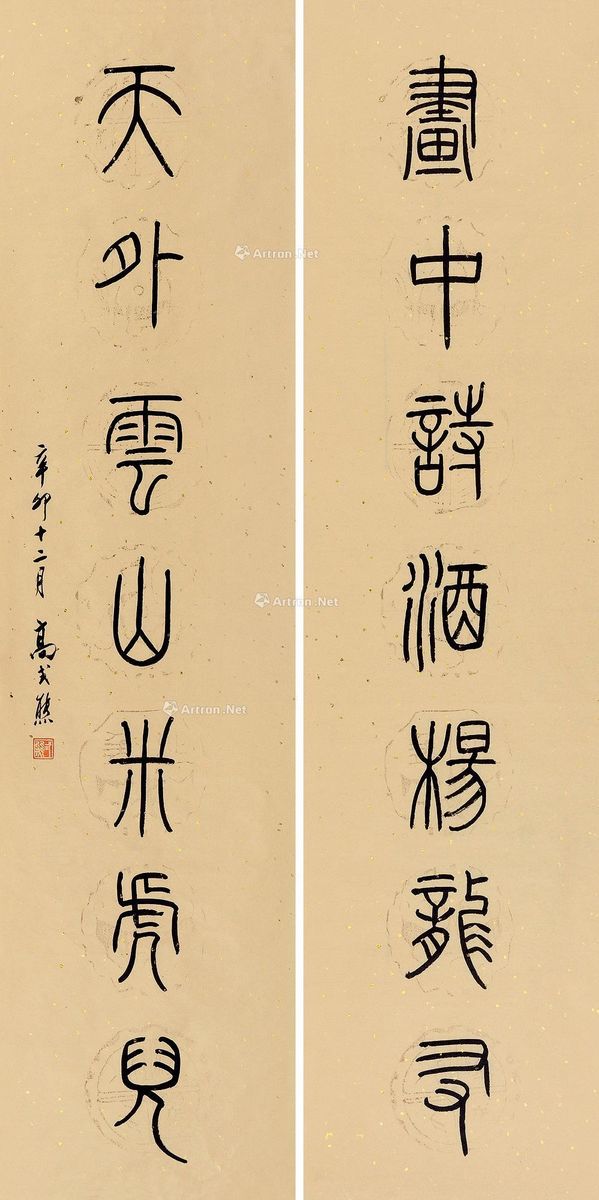 畫中詩酒楊龍友
天外雲山米虎兒
辛卯十二月 高式熊
Artron.Net
Artron.Net
Artron.Net